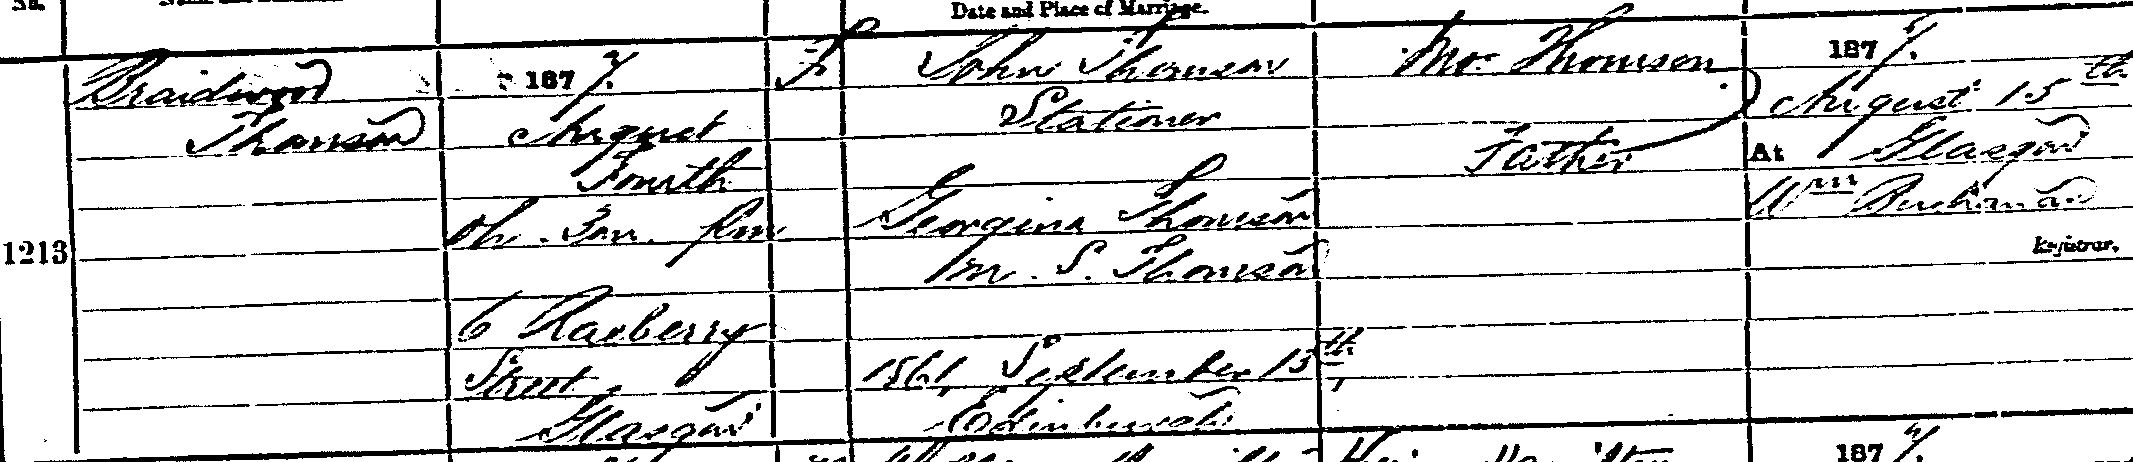 No.
Date and Place of Marriage.
1213
Braidwood
Thomson
187
August
Fourth
6 Raeberry
Street
Glasgow
F
John Thomson
Stationer
Georgina Thomson
m. S. Thomson
1861, September 13th,
Edinburgh
Thomson
Father
187
August 15th
At Glasgow
Wm Buchanan
Registrar.
187